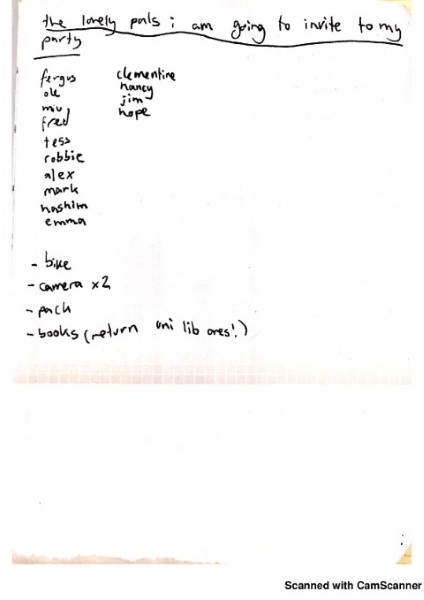 the lovely pals i am going to invite to my
party
fergus
ole
miu
fred
tess
robbie
alex
mark
hashim
emma
clementine
nancy
jim
hope
- bike
- camera x2
- pack
- books (return uni lib ones!)
Scanned with CamScanner